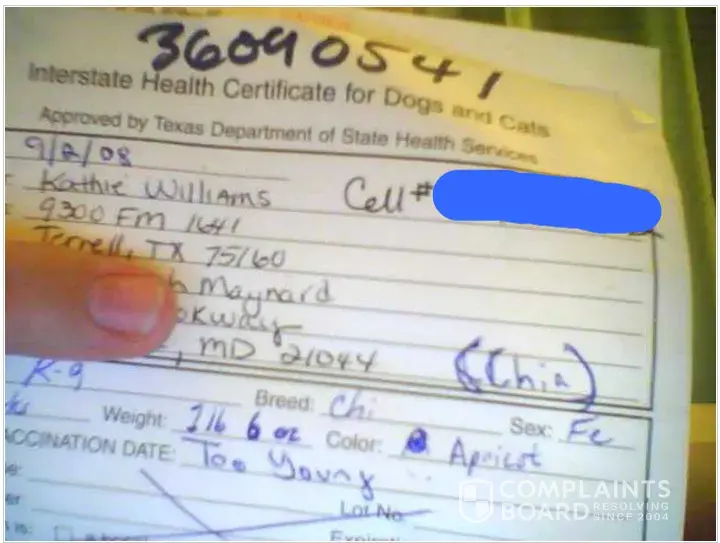 36090541
Interstate Health Certificate for Dogs and Cats
Approved by Texas Department of State Health Services
9/2/08
Kathie Williams Cell #
9300 FM 1641
Terrell, TX 75160
h Maynard
okway
, MD 21044 (Chia)
K-9 Breed: Chi Sex: Fe
Weight: 1 lb 6 oz Color: Apricot
ACCINATION DATE: Too Young
Lot No
COMPLAINTS
BOARD RESOLVING
SINCE 2004